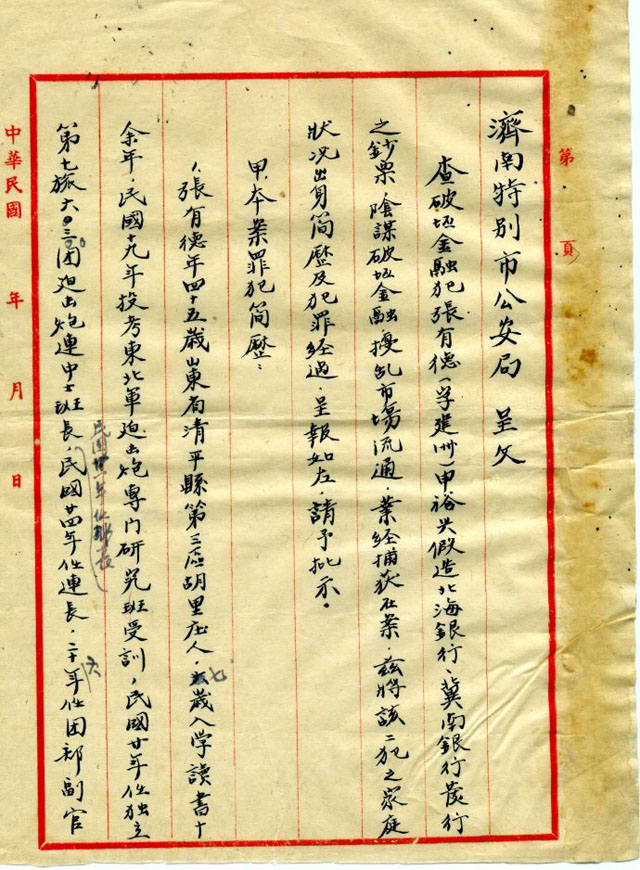 第　頁
濟南特别市公安局　呈文
查破坯金融犯張有德(字建州)申裕兴假造北海銀行、冀南銀行發行
之鈔票，陰謀破坯金融擾乱市場流通，業經捕获在案，茲将該二犯之家庭
狀况出身简歷及犯罪经過，呈報如左，請予批示。
甲，本案罪犯简歷：
1、張有德年四十五歲山東省清平縣第三區胡里庄人，七歲入学讀書十
余年，民國十九年投考東北軍迫击炮専门研究班受訓，民國廿年任独立
第七旅六〇三團迫击炮連中士班長，民國廿四年任連長，二十六年任团部副官
民國廿二年任排長
中華民國　年　月　日